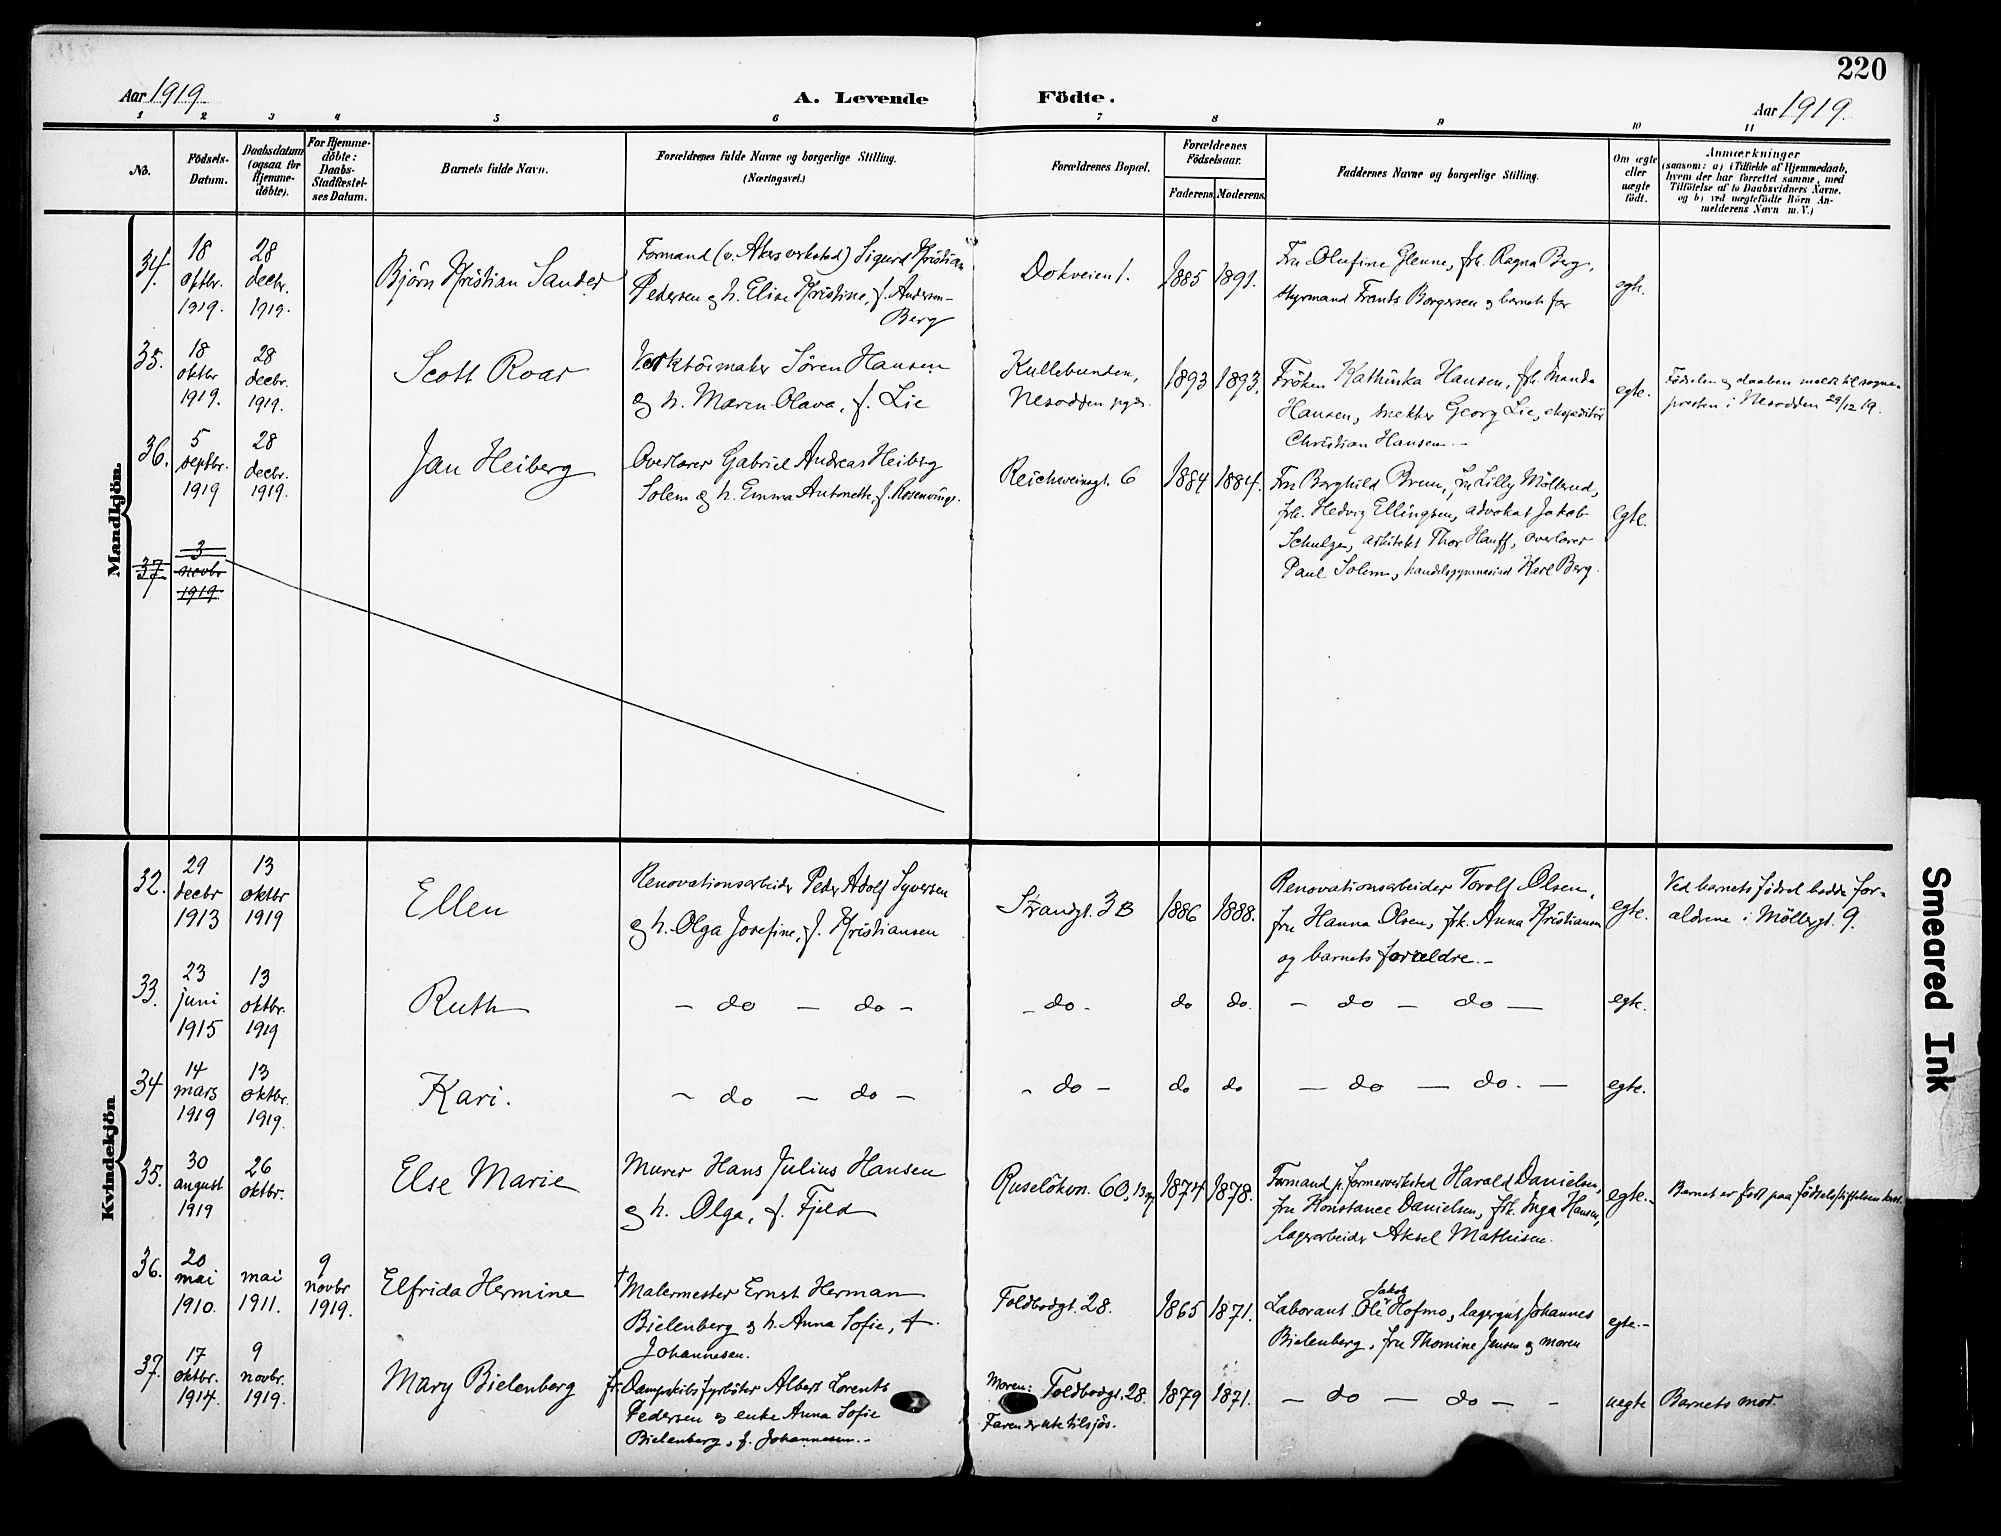 220
Aar 1919.
A. Levende Födte.
Aar 1919.
1 2 3 4 5 6 7 8 9 10 11
No.
Födsels-
Datum.
Daabsdatum
(ogsaa for
Hjemme-
döbte).
For Hjemme-
döbte:
Daabs-
Stadfæstel-
ses Datum.
Barnets fulde Navn.
Forældrenes fulde Navne og borgerlige Stilling.
(Næringsvei.)
Forældrenes Bopæl.
Forældrenes
Födselsaar.
Faderens. Moderens.
Faddernes Navne og borgerlige Stilling.
Om ægte
eller
uægte
födt.
Anmærkninger
(saasom: a) i Tilfælde af Hjemmedaab,
hvem der har forrettet samme, med
Tilföielse af to Daabsvidners Navne.
og b) ved uægtefödte Börn An-
melderens Navn m. V.)
Mandkjön.
34.
18
oktbr.
1919.
28
decbr.
1919.
Björn Kristian Sander
Formand (v. Akers verksted) Sigurd Kristian
Pedersen og h. Elise Kristine, f. Andersen-
Berg
Dokveien 1.
1885
1891.
Fru Olufine Glenne, frk. Ragna Berg,
styrmand Frants Borgersen og barnets far
egte.
35.
18
oktbr
1919.
28
decbr.
1919.
Scott Roar
Verktöimaker Sören Hansen
og h. Maren Olava, f. Lie
Kullebunden,
Nesodden pgd.
1893
1893.
Fröken Kathinka Hansen, frk. Manda
Hansen, snekker Georg Lie, ekspeditör
Christian Hansen. -
egte.
Födselen og daaben meldt til sogne-
presten i Nesodden 29/12 19.
36.
5
septbr.
1919
28
decbr.
1919.
Jan Heiberg
Overlærer Gabriel Andreas Heiberg
Solem og h. Emma Antonette, f. Rosenvinge.
Reichweinsgt. 6
1884
1884.
Fru Borghild Bruun, fru Lilly Möllerud,
frk. Hedvig Ellingsen, advokat Jakob
Schulze, arkitekt Thor Hauff, overlærer
Paul Solem, handelsgymnasiast Karl Berg.
egte.
37
3
novbr
1919
Kvindekjön
32.
29
decbr
1913
13
oktbr
1919
Ellen
Renovationsarbeider Peder Adolf Syversen
og h. Olga Josefine, f. Kristiansen
Strandgt. 3 B
1886
1888.
Renovationsarbeider Torolf Olsen,
fru Hanna Olsen, frk. Anna Kristiansen
og barnets forældre. -
egte.
Ved barnets födsel bodde for-
ældrene i Möllergt. 9.
33.
23
juni
1915
13
oktbr.
1919
Ruth
- do - do -
- do -
do
do.
- do - do -
egte.
34
14
mars
1919
13
oktbr.
1919.
Kari.
- do - do -
- do -
do
do
- do - do. -
egte.
35.
30
august
1919
26
oktbr.
Else Marie
Murer Hans Julius Hansen
og h. Olga, f. Fjeld
Ruselökvn. 60,
1874
1878.
Formand p. formerverksted Harald Danielsen,
fru Konstance Danielsen, frk. Inga Hansen,
lagerarbeider Aksel Mathisen.
egte. -
Barnet er födt paa Födselsstiftelsen
36.
20
mai
1910.
mai
1911.
9
novbr
1919.
Elfrida Hermine
† Malermester Ernst Herman
Bielenberg og h. Anna Sofie, f.
Johannesen.
Toldbodgt. 28.
1865
1871.
Jakob
Laborant Ole Hofmo, lagergut Johannes
Bielenberg, fru Thomine Jensen og moren
egte. -
37.
17
oktbr.
1914.
9
novbr.
1919.
Mary Bielenberg
fr. Dampskibsfyrböter Albert Lorents
Pedersen og enke Anna Sofie
Bielenberg, f. Johannesen. -
Moren: Toldbodgt. 28.
Faren er ute tilsjös.
1879
1871.
- do - do - -
uegte
Barnets mor.
Smeared Ink